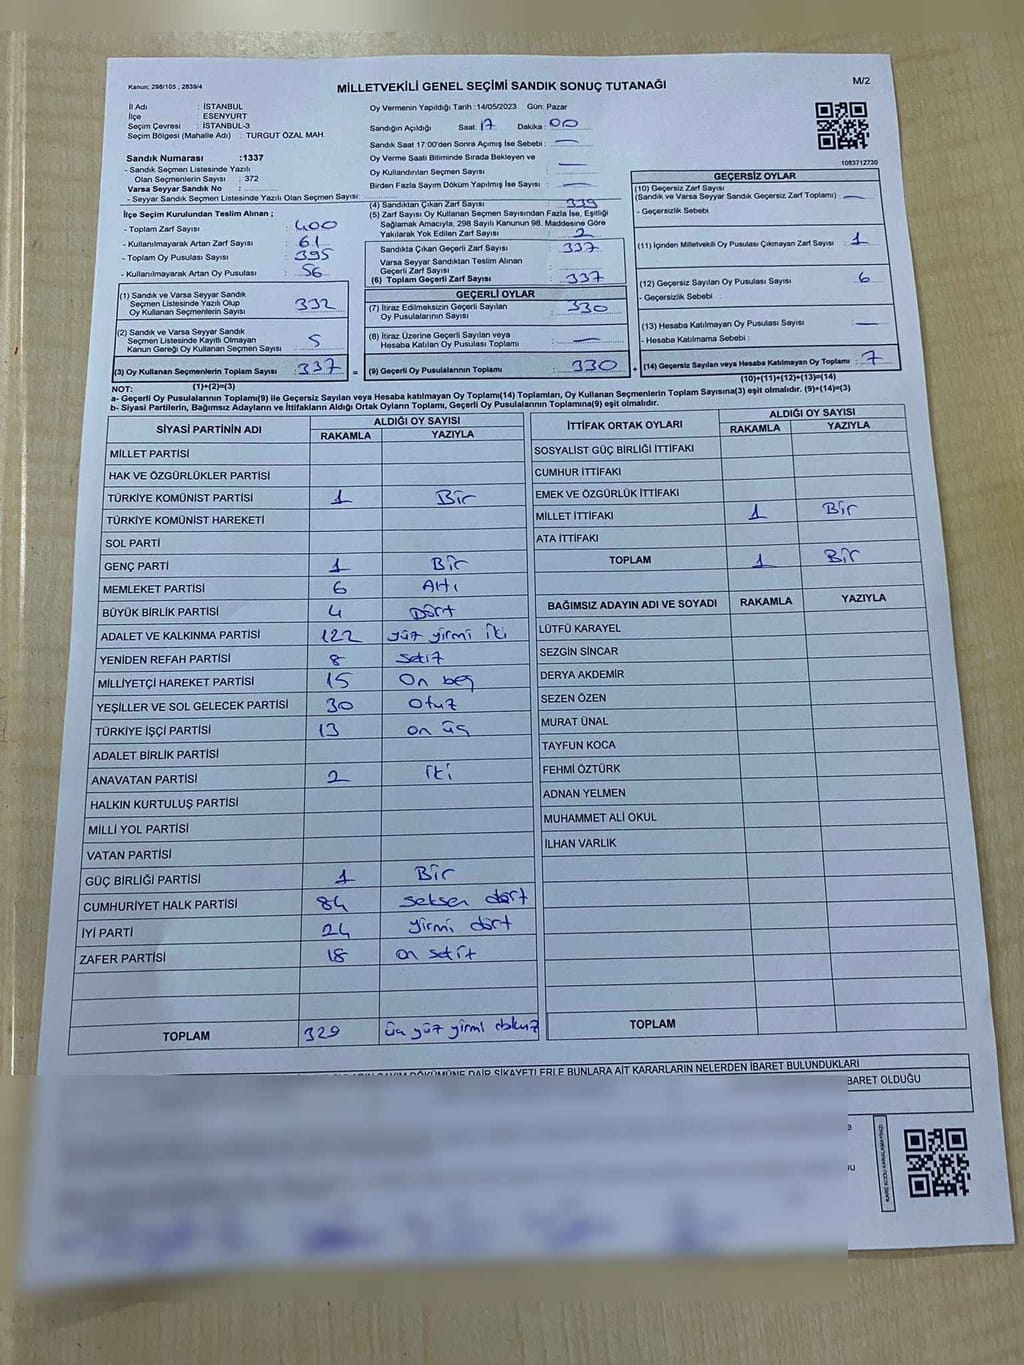 Kanun: 298/105 , 2839/4
MİLLETVEKİLİ GENEL SEÇİMİ SANDIK SONUÇ TUTANAĞI
M/2
İl Adı : İSTANBUL
İlçe : ESENYURT
Seçim Çevresi : İSTANBUL-3
Seçim Bölgesi (Mahalle Adı) : TURGUT ÖZAL MAH.
Sandık Numarası :1337
- Sandık Seçmen Listesinde Yazılı
Olan Seçmenlerin Sayısı : 372
Varsa Seyyar Sandık No :
- Seyyar Sandık Seçmen Listesinde Yazılı Olan Seçmen Sayısı:
İlçe Seçim Kurulundan Teslim Alınan ;
- Toplam Zarf Sayısı : 400
- Kullanılmayarak Artan Zarf Sayısı : 61
- Toplam Oy Pusulası Sayısı : 395
- Kullanılmayarak Artan Oy Pusulası : 56
(1) Sandık ve Varsa Seyyar Sandık
Seçmen Listesinde Yazılı Olup
Oy Kullanan Seçmenlerin Sayısı : 332
(2) Sandık ve Varsa Seyyar Sandık
Seçmen Listesinde Kayıtlı Olmayan
Kanun Gereği Oy Kullanan Seçmen Sayısı : 5
(3) Oy Kullanan Seçmenlerin Toplam Sayısı : 337 =
Oy Vermenin Yapıldığı Tarih :14/05/2023 Gün: Pazar
Sandığın Açıldığı Saat: 17 Dakika : 00
Sandık Saat 17:00'den Sonra Açımış İse Sebebi : —
Oy Verme Saati Bitiminde Sırada Bekleyen ve
Oy Kullandırılan Seçmen Sayısı : —
Birden Fazla Sayım Döküm Yapılmış İse Sayısı : —
(4) Sandıktan Çıkan Zarf Sayısı : 339
(5) Zarf Sayısı Oy Kullanan Seçmen Sayısından Fazla İse, Eşitliği
Sağlamak Amacıyla, 298 Sayılı Kanunun 98. Maddesine Göre
Yakılarak Yok Edilen Zarf Sayısı : 2
Sandıkta Çıkan Geçerli Zarf Sayısı : 337
Varsa Seyyar Sandıktan Teslim Alınan
Geçerli Zarf Sayısı :
(6) Toplam Geçerli Zarf Sayısı : 337
GEÇERLİ OYLAR
(7) İtiraz Edilmeksizin Geçerli Sayılan
Oy Pusulalarının Sayısı : 330
(8) İtiraz Üzerine Geçerli Sayılan veya
Hesaba Katılan Oy Pusulası Toplamı : —
(9) Geçerli Oy Pusulalarının Toplamı : 330 +
1083712730
GEÇERSİZ OYLAR
(10) Geçersiz Zarf Sayısı
(Sandık ve Varsa Seyyar Sandık Geçersiz Zarf Toplamı) : —
- Geçersizlik Sebebi :
(11) İçinden Milletvekili Oy Pusulası Çıkmayan Zarf Sayısı : 1
(12) Geçersiz Sayılan Oy Pusulası Sayısı : 6
- Geçersizlik Sebebi :
(13) Hesaba Katılmayan Oy Pusulası Sayısı : —
- Hesaba Katılmama Sebebi :
(14) Geçersiz Sayılan veya Hesaba Katılmayan Oy Toplamı : 7
(1)+(2)=(3)
(10)+(11)+(12)+(13)=(14)
NOT:
a- Geçerli Oy Pusulalarının Toplamı(9) ile Geçersiz Sayılan veya Hesaba katılmayan Oy Toplamı(14) Toplamları, Oy Kullanan Seçmenlerin Toplam Sayısına(3) eşit olmalıdır. (9)+(14)=(3)
b- Siyasi Partilerin, Bağımsız Adayların ve İttifakların Aldığı Ortak Oyların Toplamı, Geçerli Oy Pusulalarının Toplamına(9) eşit olmalıdır.
SİYASİ PARTİNİN ADI ALDIĞI OY SAYISI
RAKAMLA YAZIYLA
MİLLET PARTİSİ
HAK VE ÖZGÜRLÜKLER PARTİSİ
TÜRKİYE KOMÜNİST PARTİSİ 1 Bir
TÜRKİYE KOMÜNİST HAREKETİ
SOL PARTİ
GENÇ PARTİ 1 Bir
MEMLEKET PARTİSİ 6 Altı
BÜYÜK BİRLİK PARTİSİ 4 Dört
ADALET VE KALKINMA PARTİSİ 122 yüz yirmi iki
YENİDEN REFAH PARTİSİ 8 sekiz
MİLLİYETÇİ HAREKET PARTİSİ 15 On beş
YEŞİLLER VE SOL GELECEK PARTİSİ 30 Otuz
TÜRKİYE İŞÇİ PARTİSİ 13 on üç
ADALET BİRLİK PARTİSİ
ANAVATAN PARTİSİ 2 iki
HALKIN KURTULUŞ PARTİSİ
MİLLİ YOL PARTİSİ
VATAN PARTİSİ
GÜÇ BİRLİĞİ PARTİSİ 1 Bir
CUMHURİYET HALK PARTİSİ 84 seksen dört
İYİ PARTİ 24 yirmi dört
ZAFER PARTİSİ 18 on sekiz
TOPLAM 329 üç yüz yirmi dokuz
İTTİFAK ORTAK OYLARI ALDIĞI OY SAYISI
RAKAMLA YAZIYLA
SOSYALİST GÜÇ BİRLİĞİ İTTİFAKI
CUMHUR İTTİFAKI
EMEK VE ÖZGÜRLÜK İTTİFAKI
MİLLET İTTİFAKI 1 Bir
ATA İTTİFAKI
TOPLAM 1 Bir
BAĞIMSIZ ADAYIN ADI VE SOYADI RAKAMLA YAZIYLA
LÜTFÜ KARAYEL
SEZGİN SİNCAR
DERYA AKDEMİR
SEZEN ÖZEN
MURAT ÜNAL
TAYFUN KOCA
FEHMİ ÖZTÜRK
ADNAN YELMEN
MUHAMMET ALİ OKUL
İLHAN VARLIK
TOPLAM
SAYIM DÖKÜMÜNE DAİR ŞİKAYETLERLE BUNLARA AİT KARARLARIN NELERDEN İBARET BULUNDUKLARI
BARET OLDUĞU